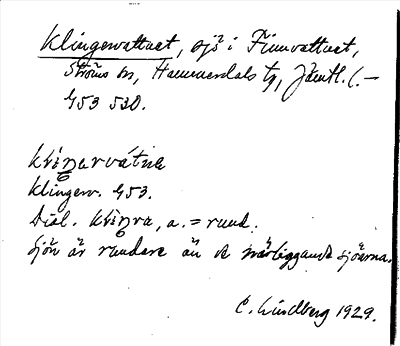 Klingervattnet, sjö i Finnvattnet,
Ströms sn, Hammerdals tg, Jämtl. l. –
G53 520.
klìŋarvátne
Klingerv. G53.
Dial. klìŋra, a. = rund.
Sjön är rundare än de närliggande sjöarna.
C. Lindberg 1929.